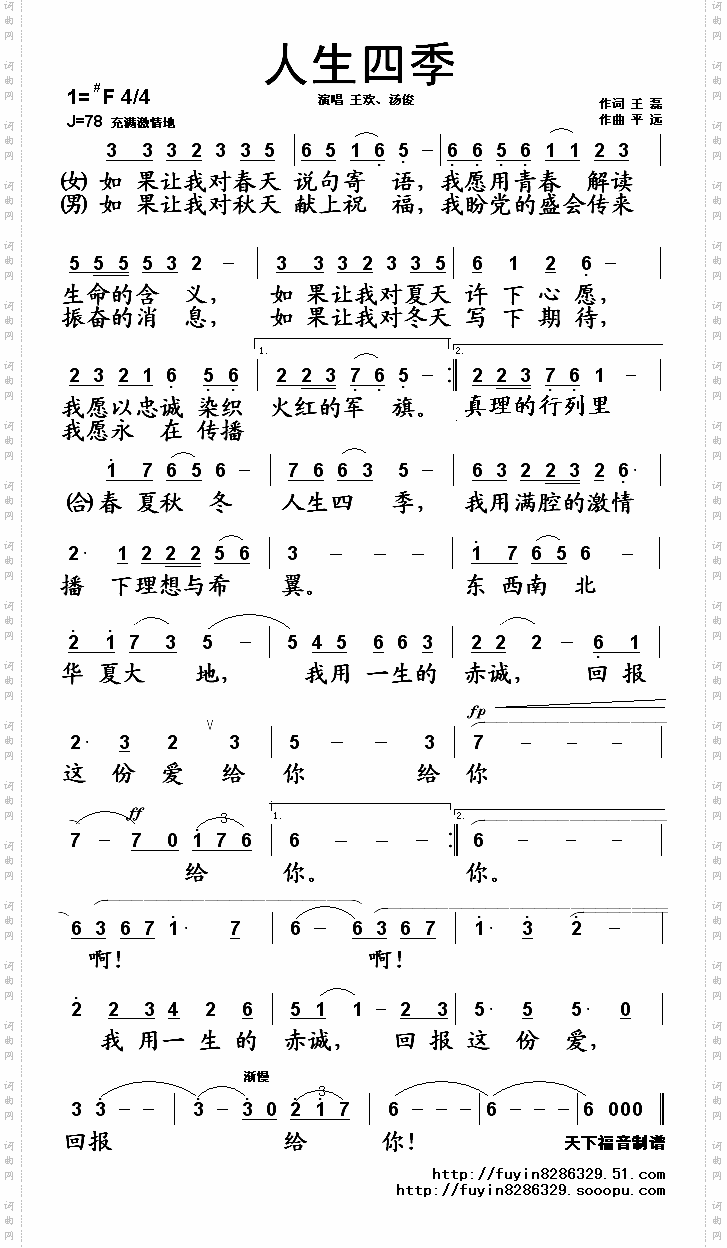 人生四季
1=#F 4/4
演唱 王欢、汤俊
作词 王 磊
J=78 充满激情地
作曲 平 远
3 3 3 2 3 3 5 | 6 5 1 6 5 - | 6 6 5 6 1 1 2 3 |
(女) 如 果让我对春天 说句寄 语，我愿用青春 解读
(男) 如 果让我对秋天 献上祝 福，我盼党的盛会传来
5 5 5 5 3 2 - | 3 3 3 2 3 3 5 | 6 1 2 6 - |
生命的含 义， 如 果让我对夏天 许 下 心 愿，
振奋的消 息， 如 果让我对冬天 写 下 期 待，
1. 2.
2 3 2 1 6 5 6 | 2 2 3 7 6 5 - :‖ 2 2 3 7 6 1 - |
我愿以忠诚 染织 火红的军 旗。 真理的行列里
我愿永 在 传播
1 7 6 5 6 - | 7 6 6 3 5 - | 6 3 2 2 3 2 6· |
(合) 春 夏秋 冬 人生四 季， 我用满腔的激情
2· 1 2 2 2 5 6 | 3 - - - | 1 7 6 5 6 - |
播 下理想与希 翼。 东 西南 北
2 1 7 3 5 - | 5 4 5 6 6 3 | 2 2 2 - 6 1 |
华 夏大 地， 我用 一生的 赤诚， 回 报
V fp
2· 3 2 3 | 5 - - 3 | 7 - - - |
这 份 爱 给 你 给 你
ff 3 1. 2.
7 - 7 0 1 7 6 | 6 - - - :‖ 6 - - - |
给 你。 你。
6 3 6 7 1· 7 | 6 - 6 3 6 7 | 1· 3 2 - |
啊！ 啊！
2 2 3 4 2 6 | 5 1 1 - 2 3 | 5· 5 5· 0 |
我 用一 生 的 赤诚， 回 报 这 份 爱，
渐慢
3
3 3 - - | 3 - 3 0 2 1 7 | 6 - - - | 6 - - - | 6 000 ‖
回报 给 你！ 天下福音制谱
http://fuyin8286329.51.com
http://fuyin8286329.sooopu.com